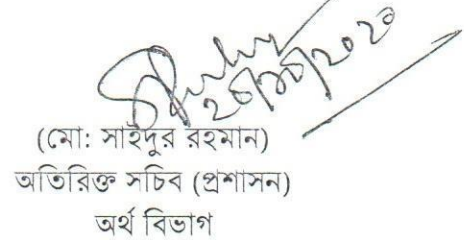 (মো: সাইদুর রহমান)
অতিরিক্ত সচিব (প্রশাসন)
অর্থ বিভাগ